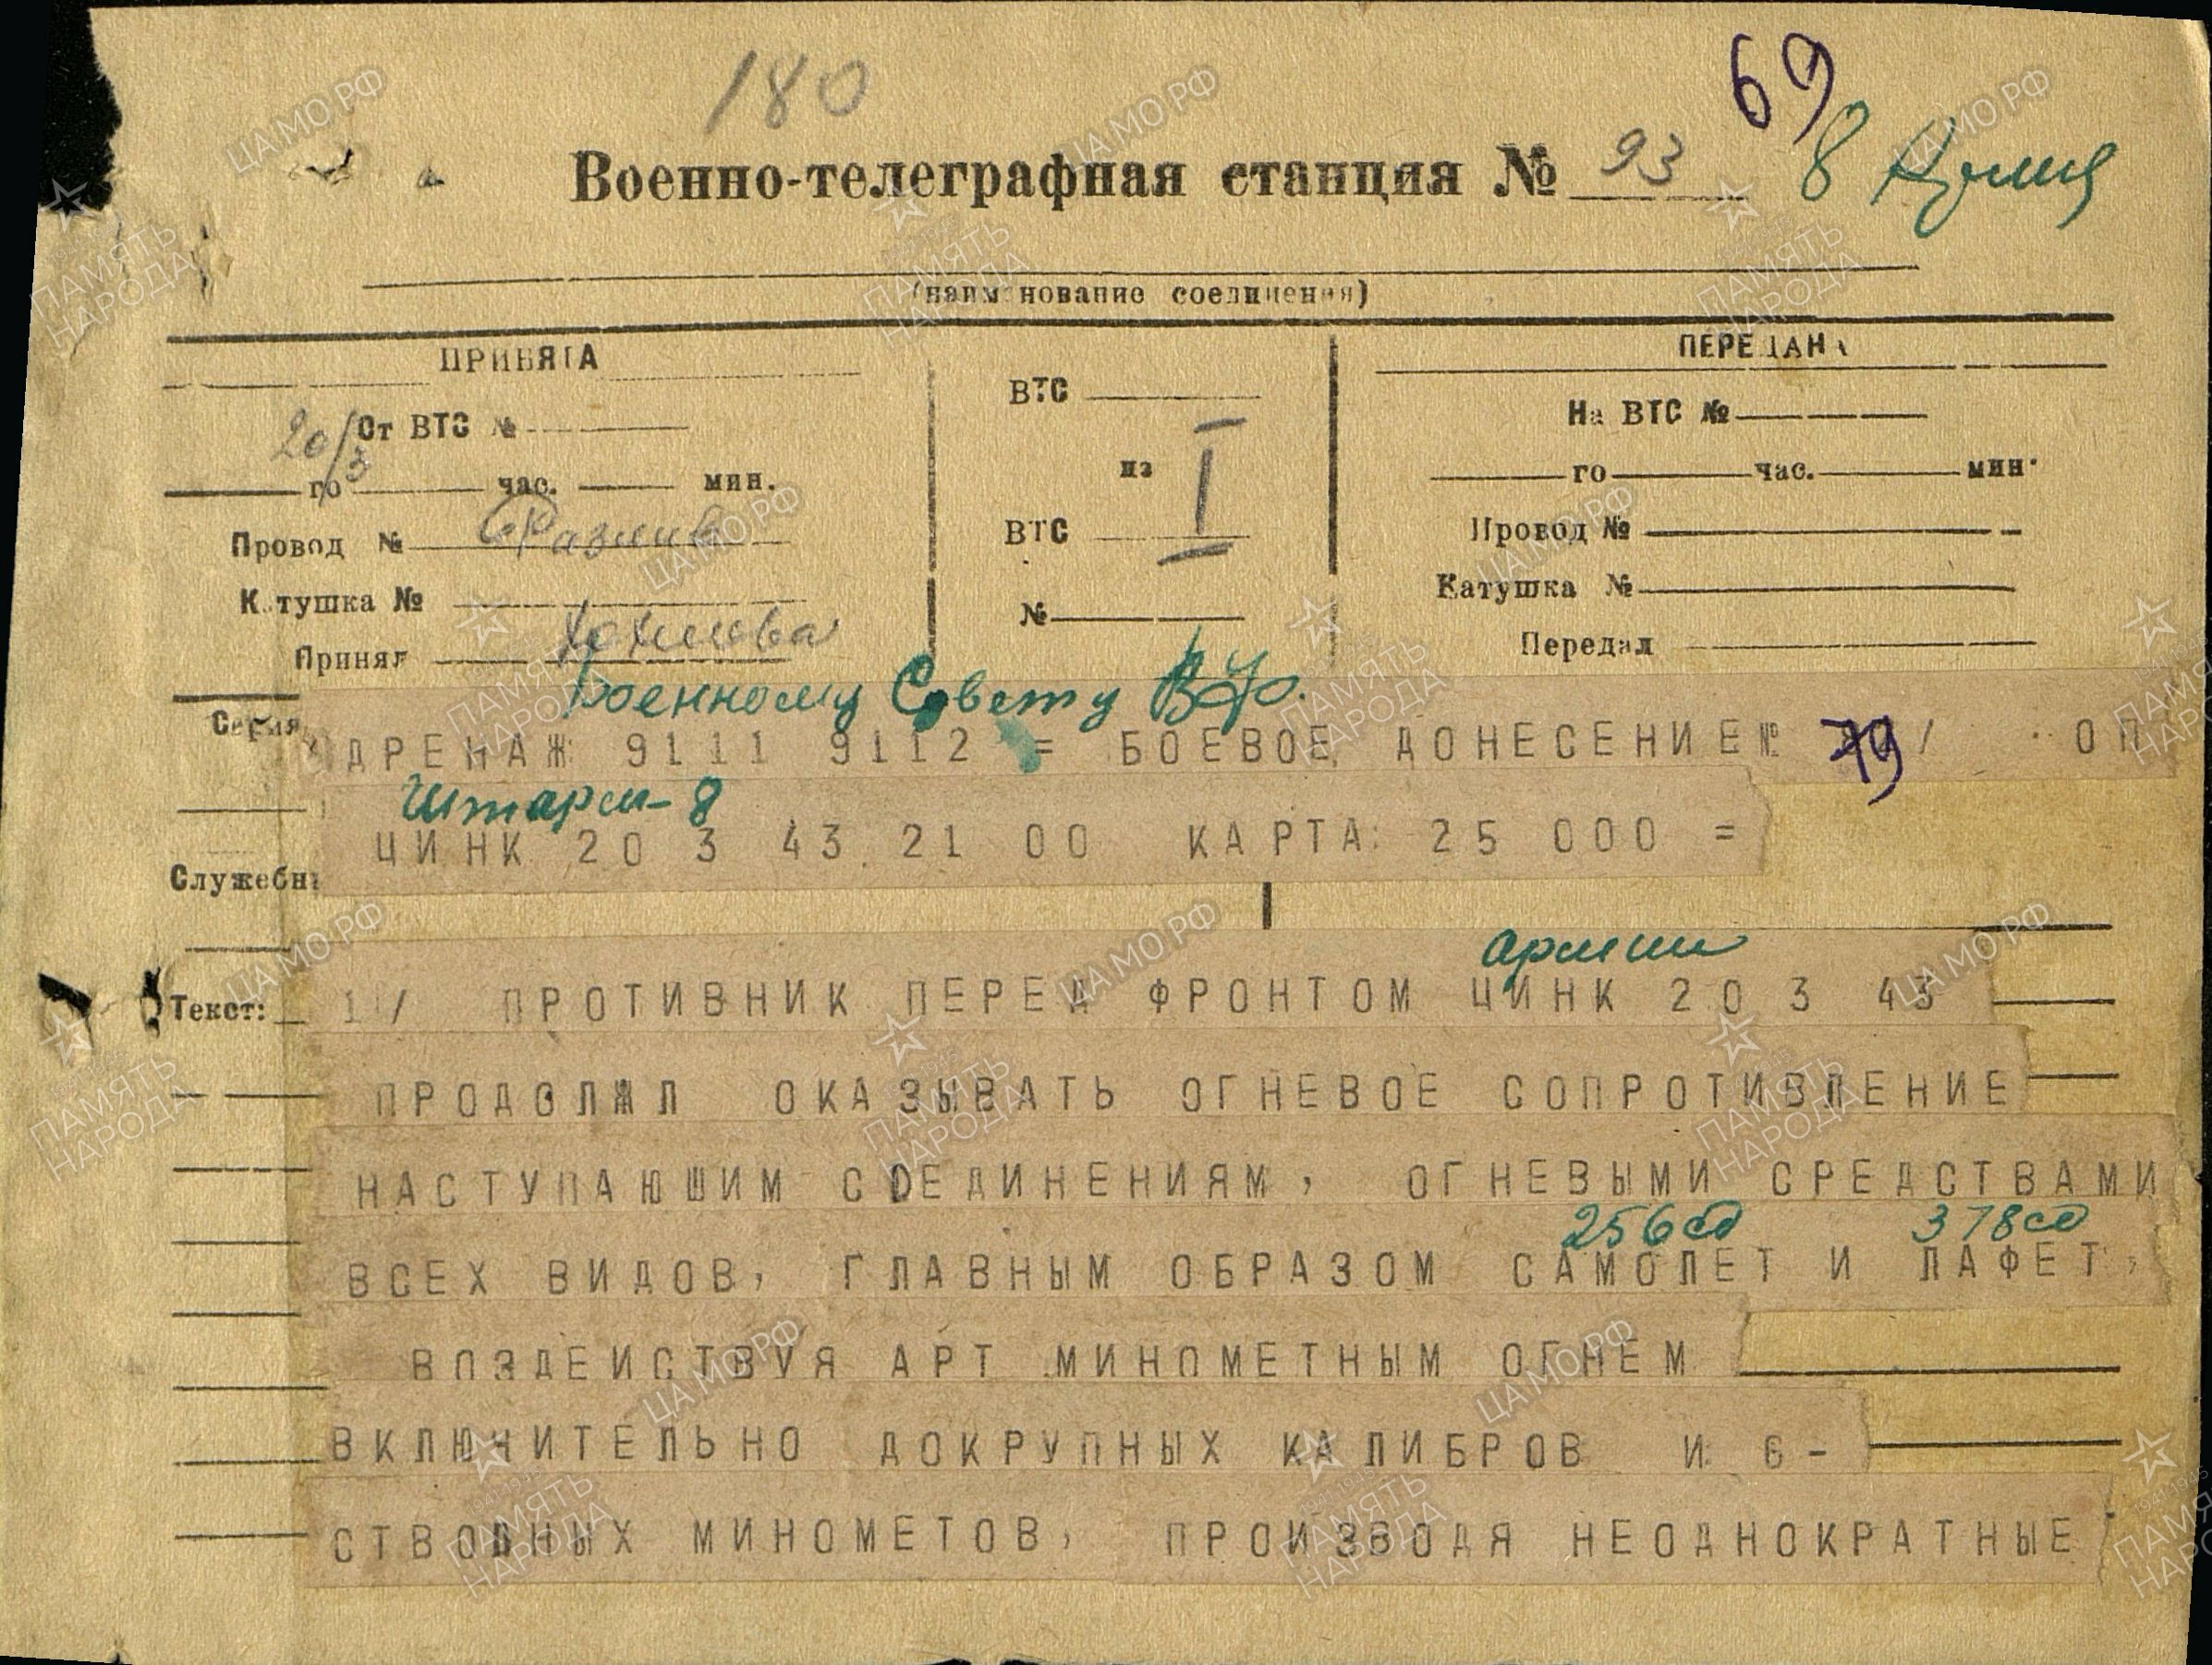 180
69
Военно-телеграфная станция № 93
8 Армия
(наименование соединения)
ПРИНЯТА
ВТС
ПЕРЕДАНА
20/3
От ВТС №
На ВТС №
го час. мин.
из I
го час. мин.
Провод №
ВТС
Провод №
Катушка №
№
Катушка №
Принял
Передал
Военному Совету ВФ.
Серия
ДРЕНАЖ 9111 9112 = БОЕВОЕ ДОНЕСЕНИЕ № 79 / ОП
Штарм-8
ЦИНК 20 3 43 21 00 КАРТА: 25 000 =
Служебн
армии
Текст: 1 / ПРОТИВНИК ПЕРЕД ФРОНТОМ ЦИНК 20 3 43
ПРОДОЛЖЛ ОКАЗЫВАТЬ ОГНЕВОЕ СОПРОТИВЛЕНИЕ
НАСТУПАЮШИМ СОЕДИНЕНИЯМ, ОГНЕВЫМИ СРЕДСТВАМИ
256сд 378сд
ВСЕХ ВИДОВ, ГЛАВНЫМ ОБРАЗОМ САМОЛЕТ И ЛАФЕТ,
ВОЗДЕИСТВУЯ АРТ МИНОМЕТНЫМ ОГНЕМ
ВКЛЮЧИТЕЛЬНО ДОКРУПНЫХ КАЛИБРОВ И 6-
СТВОЛНЫХ МИНОМЕТОВ, ПРОИЗВОДЯ НЕОДНОКРАТНЫЕ
ЦАМО.РФ
ПАМЯТЬ НАРОДА